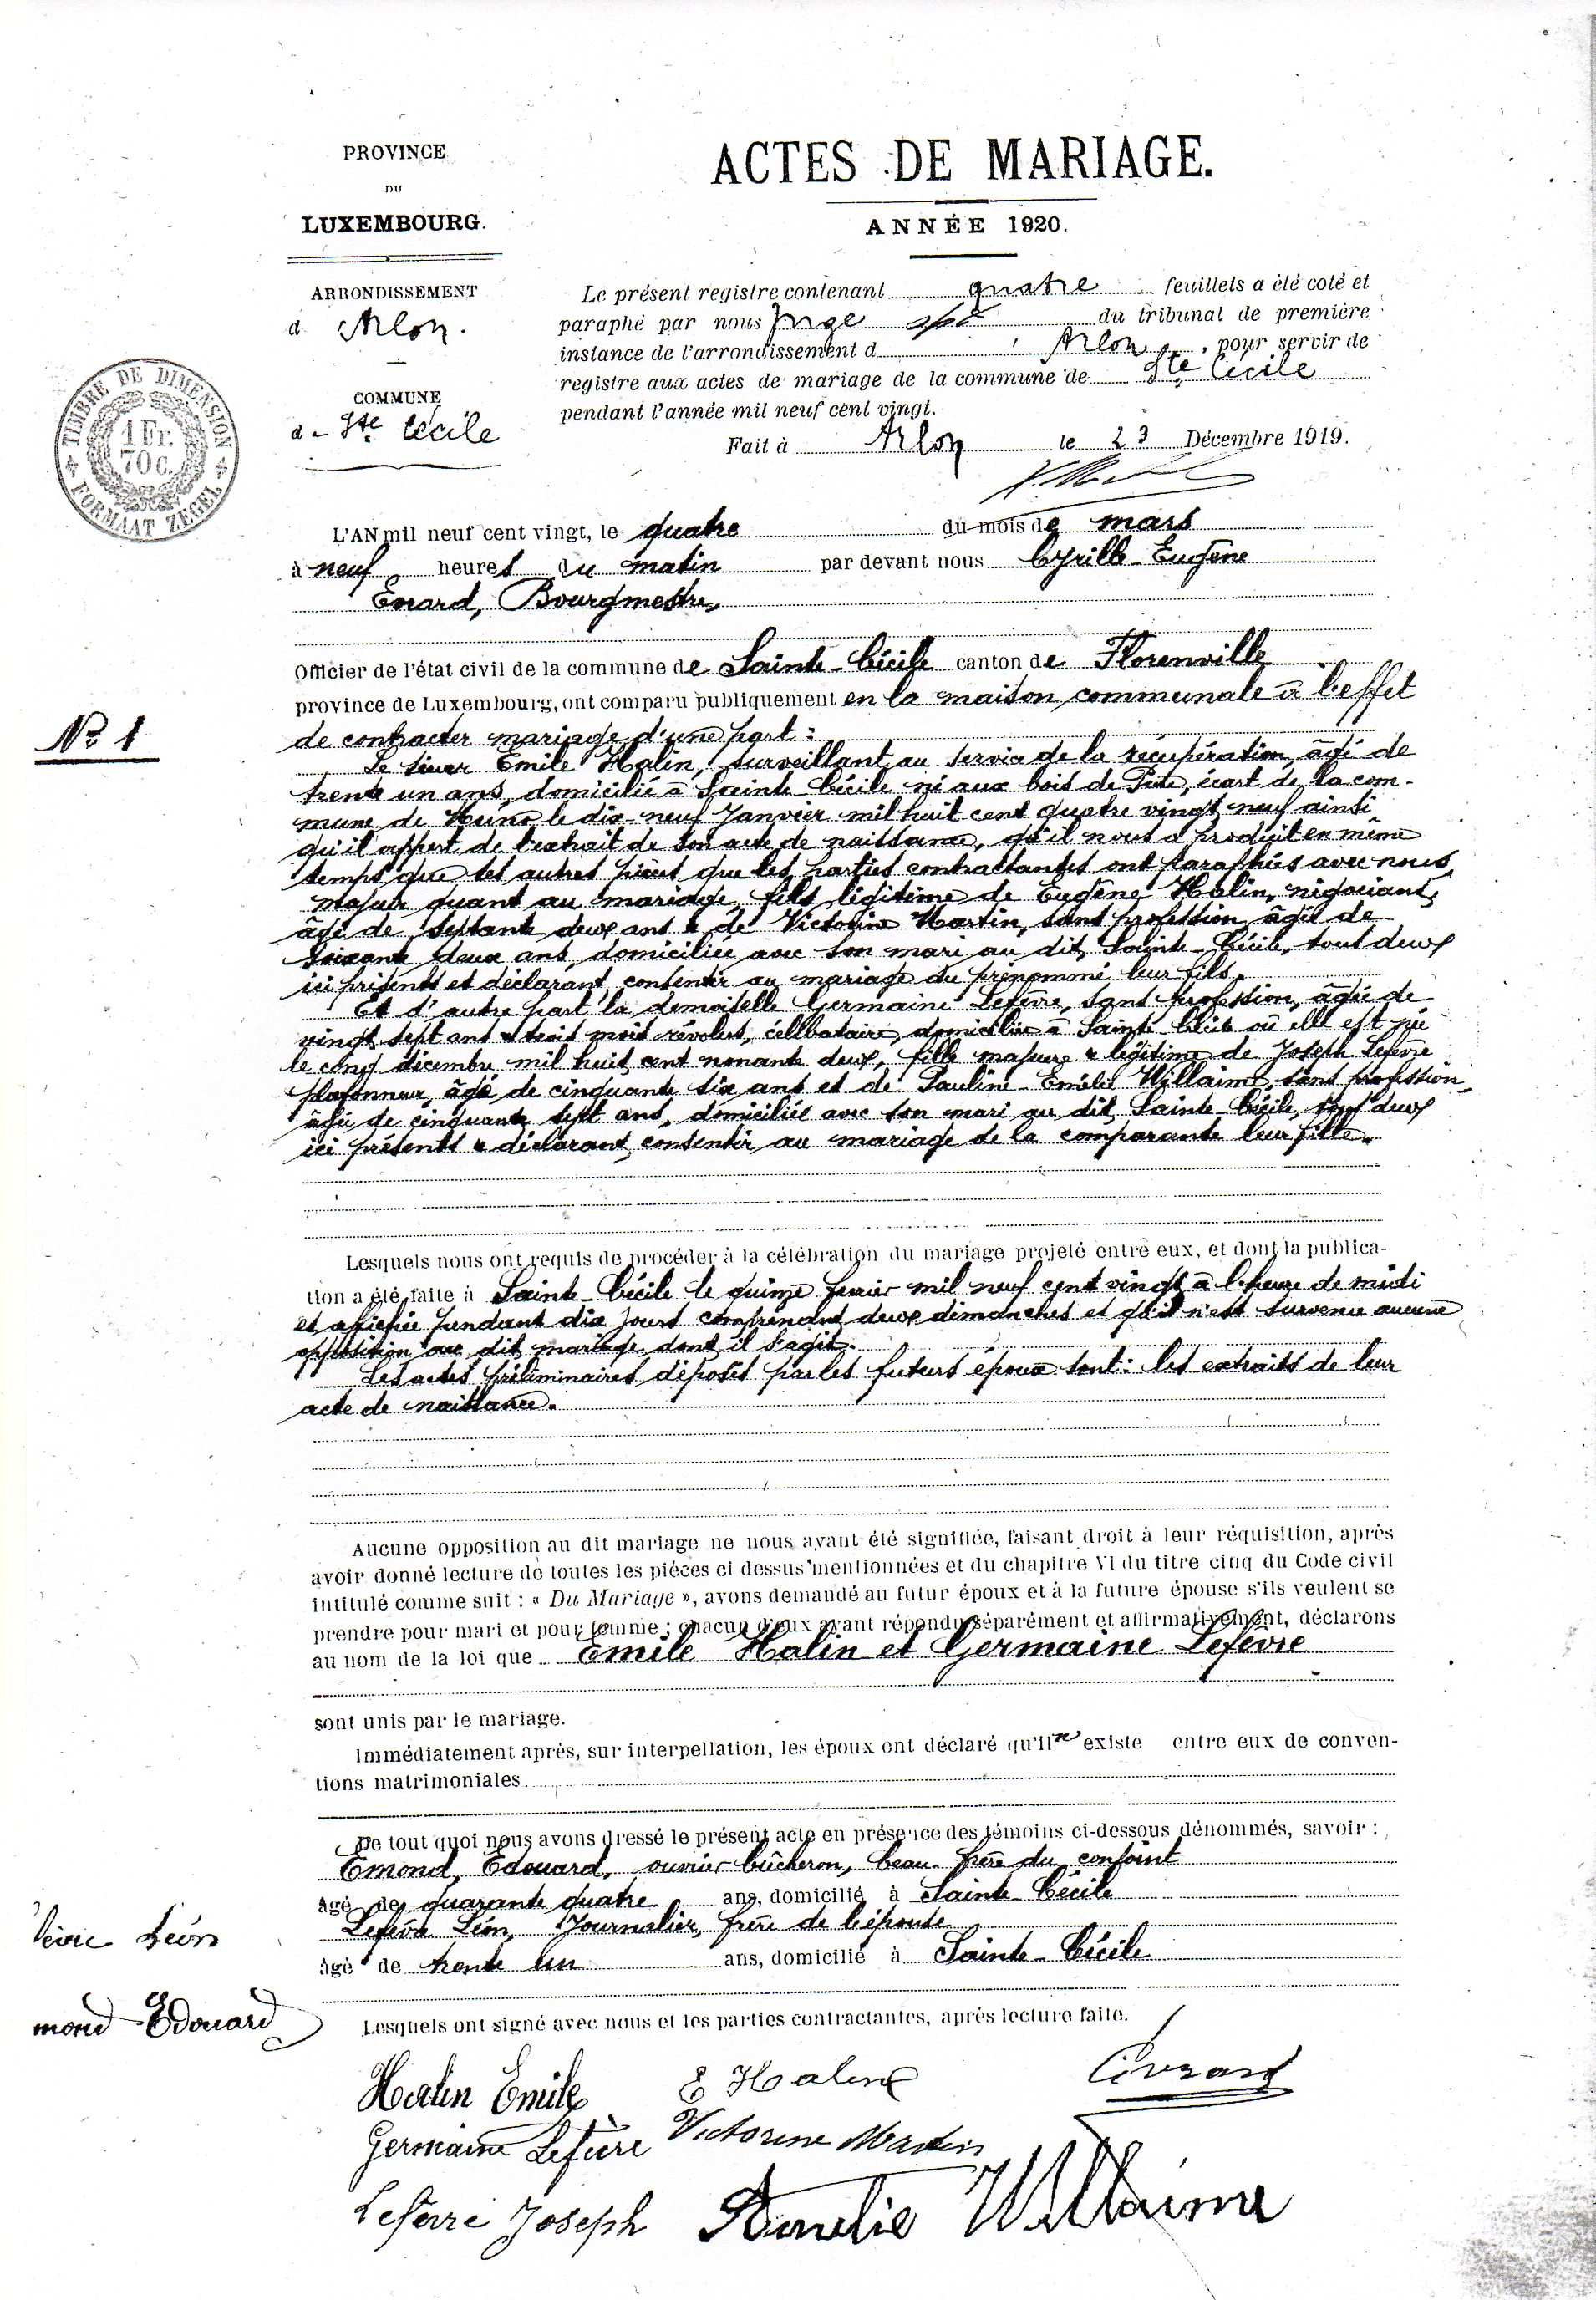 PROVINCE
DU
LUXEMBOURG.
ARRONDISSEMENT
d Arlon.
COMMUNE
d - Ste Cécile
TIMBRE DE DIMENSION
1 Fr.
70 C.
FORMAAT ZEGEL
ACTES DE MARIAGE.
ANNÉE 1920.
Le présent registre contenant quatre feuillets a été coté et
paraphé par nous Juge du tribunal de première
instance de l'arrondissement d Arlon, pour servir de
registre aux actes de mariage de la commune de Ste Cécile
pendant l'année mil neuf cent vingt.
Fait à Arlon le 23 Décembre 1919.
L'AN mil neuf cent vingt, le quatre du mois de mars
à neuf heures du matin par devant nous Cyrille-Eugène
Evrard, Bourgmestre,
Officier de l'état civil de la commune de Sainte-Cécile canton de Florenville
province de Luxembourg, ont comparu publiquement en la maison communale à l'effet
No 1
de contracter mariage d'une part :
Le sieur Emile Halin, surveillant au service de la récupération, âgé de
trente un ans, domicilié à Sainte-Cécile né aux bois de écart de la com-
mune de Muno le dix-neuf Janvier mil huit cent quatre vingt neuf ainsi
qu'il appert de l'extrait de son acte de naissance, qu'il nous a produit en même
temps que les autres pièces que les parties contractantes ont paraphées avec nous,
majeur quant au mariage, fils légitime de Eugène Halin, négociant,
âgé de septante deux ans & de Victorine Martin, sans profession, âgée de
soixante deux ans, domiciliée avec son mari au dit Sainte-Cécile, tout deux
ici présents et déclarant consentir au mariage du prénommé leur fils.
Et d'autre part la demoiselle Germaine Lefèvre, sans profession, âgée de
vingt sept ans & trois mois révolus, célibataire, domiciliée à Sainte Cécile où elle est née
le cinq décembre mil huit cent nonante deux, fille majeure & légitime de Joseph Lefèvre
plafonneur, âgé de cinquante six ans et de Pauline-Emélie Willaime, sans profession,
âgée de cinquante sept ans, domiciliée avec son mari au dit Sainte-Cécile, tous deux
ici présents & déclarant consentir au mariage de la comparante leur fille.
Lesquels nous ont requis de procéder à la célébration du mariage projeté entre eux, et dont la publica-
tion a été faite à Sainte-Cécile le quinze fevrier mil neuf cent vingt à l'heure de midi
et affichée pendant dix jours comprenant deux dimanches et qu'il n'est survenu aucune
opposition au dit mariage dont il s'agit.
Les actes préliminaires déposés par les futurs époux sont : les extraits de leur
acte de naissance.
Aucune opposition au dit mariage ne nous ayant été signifiée, faisant droit à leur réquisition, après
avoir donné lecture de toutes les pièces ci dessus mentionnées et du chapitre VI du titre cinq du Code civil
intitulé comme suit : « Du Mariage », avons demandé au futur époux et à la future épouse s'ils veulent se
prendre pour mari et pour femme ; chacun d'eux ayant répondu séparément et affirmativement, déclarons
au nom de la loi que Emile Halin et Germaine Lefèvre
sont unis par le mariage.
Immédiatement après, sur interpellation, les époux ont déclaré qu'il n'existe entre eux de conven-
tions matrimoniales.
De tout quoi nous avons dressé le présent acte en présence des témoins ci-dessous dénommés, savoir :
Emond, Edouard, ouvrier bûcheron, beau-frère du conjoint
âgé de quarante quatre ans, domicilié à Sainte-Cécile
Lefèvre Léon, Journalier, frère de l'épouse
âgé de trente un ans, domicilié à Sainte-Cécile
Léon
mond Edouard
Lesquels ont signé avec nous et les parties contractantes, après lecture faite.
Halin Emile E Halin Evrard
Germaine Lefèvre Victorine Martin
Lefèvre Joseph Willaime